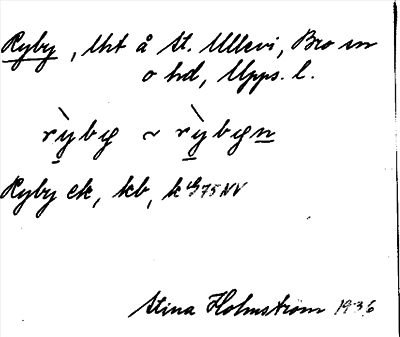 Ryby, Uht å St. Ullevi, Bro sn
o hd, Upps. l.
rỳbyn
Ryby ek, kb, k G75NV
Stina Holmström 1936